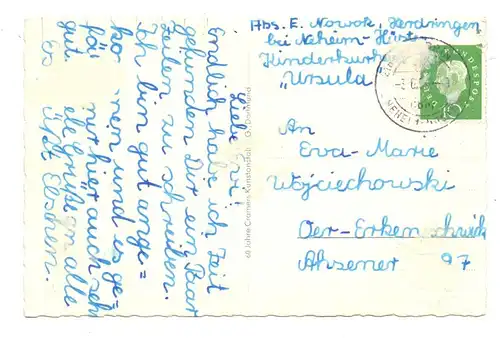 Abs. E. Nowok, Herdringen
bei Neheim-Hüsten
Kinderkurheim
"Ursula"
DEUTSCHE BUNDESPOST
An
Eva-Marie
Wojciechowski
Oer-Erkenschwick
Ahsener 97
60 Jahre Cramers Kunstanstalt Dortmund
Liebe
Endlich habe ich Zeit
gefunden Dir ein Paar
Zeilen zu schreiben.
Ich bin gut ange=
ko en und es ge=
fä mir hier auch sehr
gut. ele Grüße an alle
Es üßt Elschen.